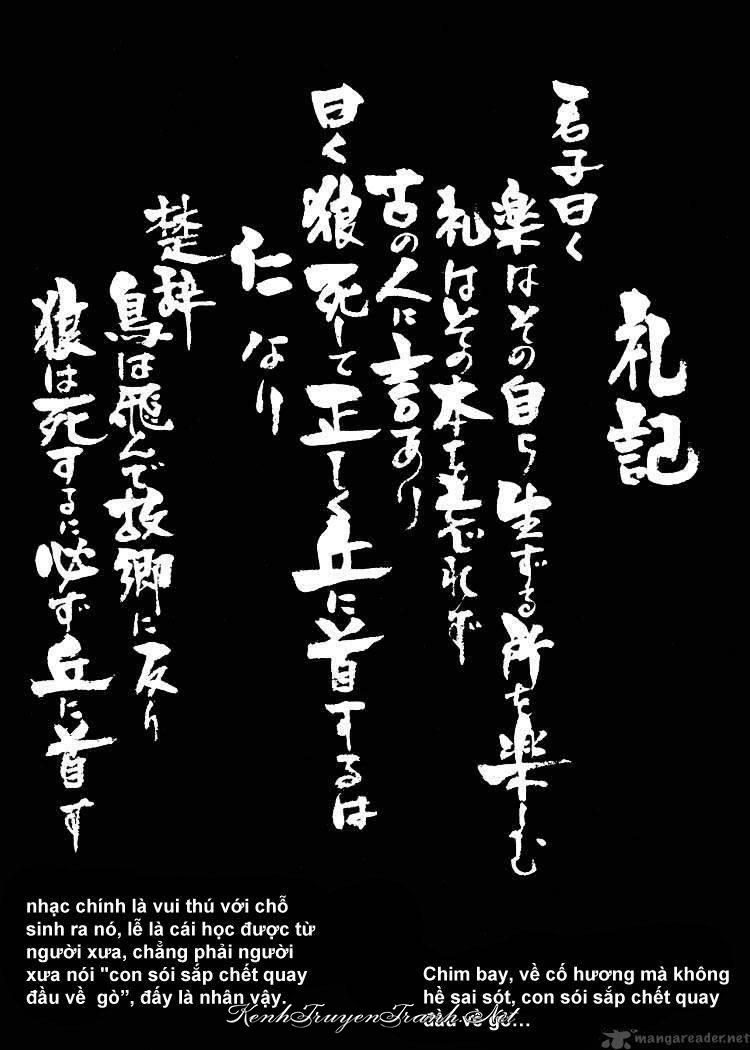 礼記
君子曰く
楽はその自ら生ずる所を楽しむ
礼はその本を忘れず
古の人に言あり
曰く狼死して正しく丘に首するは
仁なり
楚辞
鳥は飛んで故郷に反り
狼は死するに必ず丘に首す
nhạc chính là vui thú với chỗ
sinh ra nó, lễ là cái học được từ
người xưa, chẳng phải người
xưa nói "con sói sắp chết quay
đầu về gò”, đấy là nhân vậy.
Chim bay, về cố hương mà không
hề sai sót, con sói sắp chết quay
đầu về gò...
KenhTruyenTranh.Net
mangareader.net